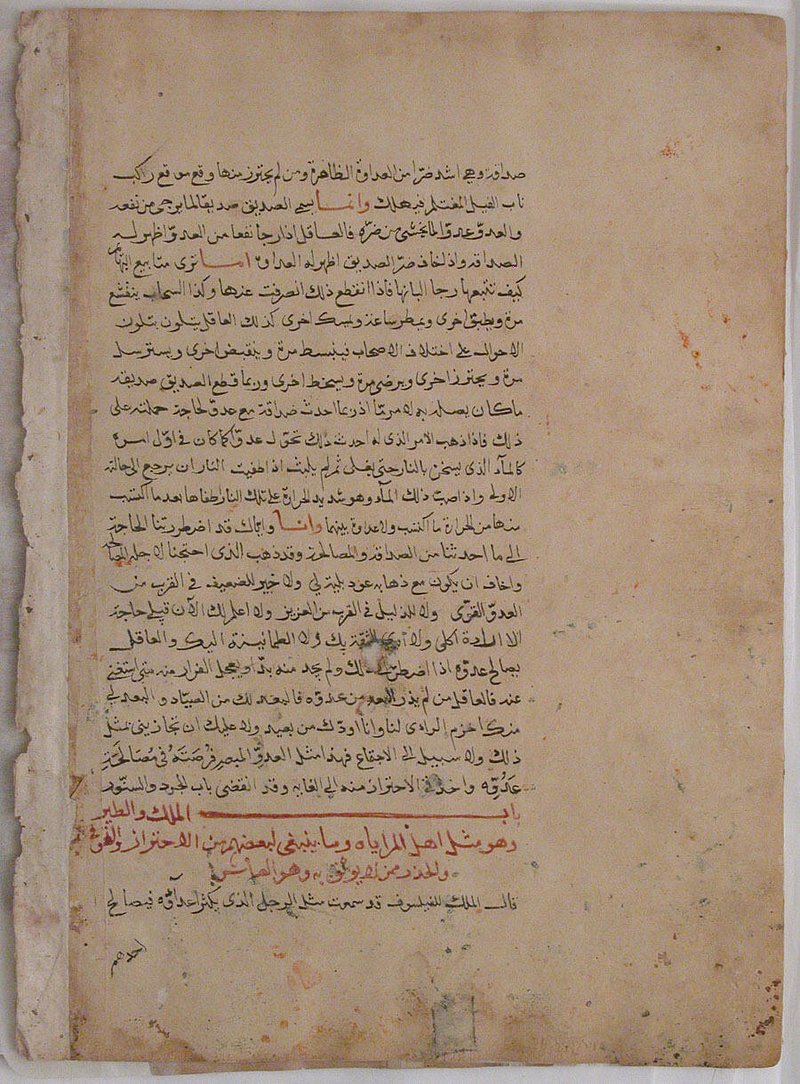 صداقة وهي اشد ضرا من العداوة الظاهرة ومن لم يحترز منها وقع موقع راكب
ناب الفيل المغتلم فيهلك وانما يسمى الصديق صديقا لما يرجى من نفعه
والعدو عدوا لما يخشى من ضره فالعاقل اذا رجا نفعا من العدو اظهر له
الصداقة واذا خاف ضر الصديق اظهر له العداوة اما ترى متابيع البهائم
كيف تتبعها رجا البانها فاذا انقطع ذلك انصرفت عنها وكذا السحاب ينقشع
مرة ويطبق اخرى ويمطر ساعة ويمسك اخرى كذلك العاقل يتلون بتلون
الاحوال على اختلاف الاصحاب فينبسط مرة وينقبض اخرى ويسترسل
مرة ويحترز اخرى ويرضى مرة ويسخط اخرى وربما قطع الصديق صديقه
ما كان يصله به لامر ما اذ ربما احدث صداقة مع عدو لحاجة حملته على
ذلك فاذا ذهب الامر الذي له احدث ذلك تحول عدوا كما كان في اول امره
كالمآء الذي يسخن بالنار حتى يغلى ثم لم يلبث اذا اطفيت النار ان يرجع الى حالته
الاولى واذا صب ذلك المآء وهو شديد الحرارة على تلك النار اطفاها بعد ما اكتسب
منها من الحرارة ما اكتسب ولا عداوة بينهما وانا واياك قد اضطررتنا الحاجة
الى ما احدثنا من الصداقة والمصالحة وقد ذهب الذي احتجنا لاجله
واخاف ان يكون مع ذهابه عود بلية لي ولا خير للضعيف في القرب من
العدو القوى ولا للذليل في القرب من العزيز ولا اعلم لك الآن قبلي حاجة
الا ارادة اكلى ولا ارى الثقة بك ولا الطمانينة اليك والعاقل
يصالح عدوه اذا اضطر الى ذلك ولم يجد منه بدا ويعجل الفرار منه متى استغنى
عنه فالعاقل من لم يذر البعد من عدوه فالبعد لك من الصياد والبعد لي
منك احزم الراءى لنا وانا اودك من بعيد ولا عليك ان تجازينى بمثل
ذلك ولا سبيل الى الاجتماع فهذا مثل العدو المبصر فرصته في مصالحة
عدوه واخذ في الاحتراز منه الى الغاية وقد انقضى باب الجرذ والسنور
باب الملك والطير
وهو مثل اهل المراياه وما ينبغى لبعضهم من الاحتراز
والحذر ممن لا يوثق به وهو العاشر
قال الملك للفيلسوف قد سمعت مثل الرجل الذي يكثر اعدآؤه فيصالح